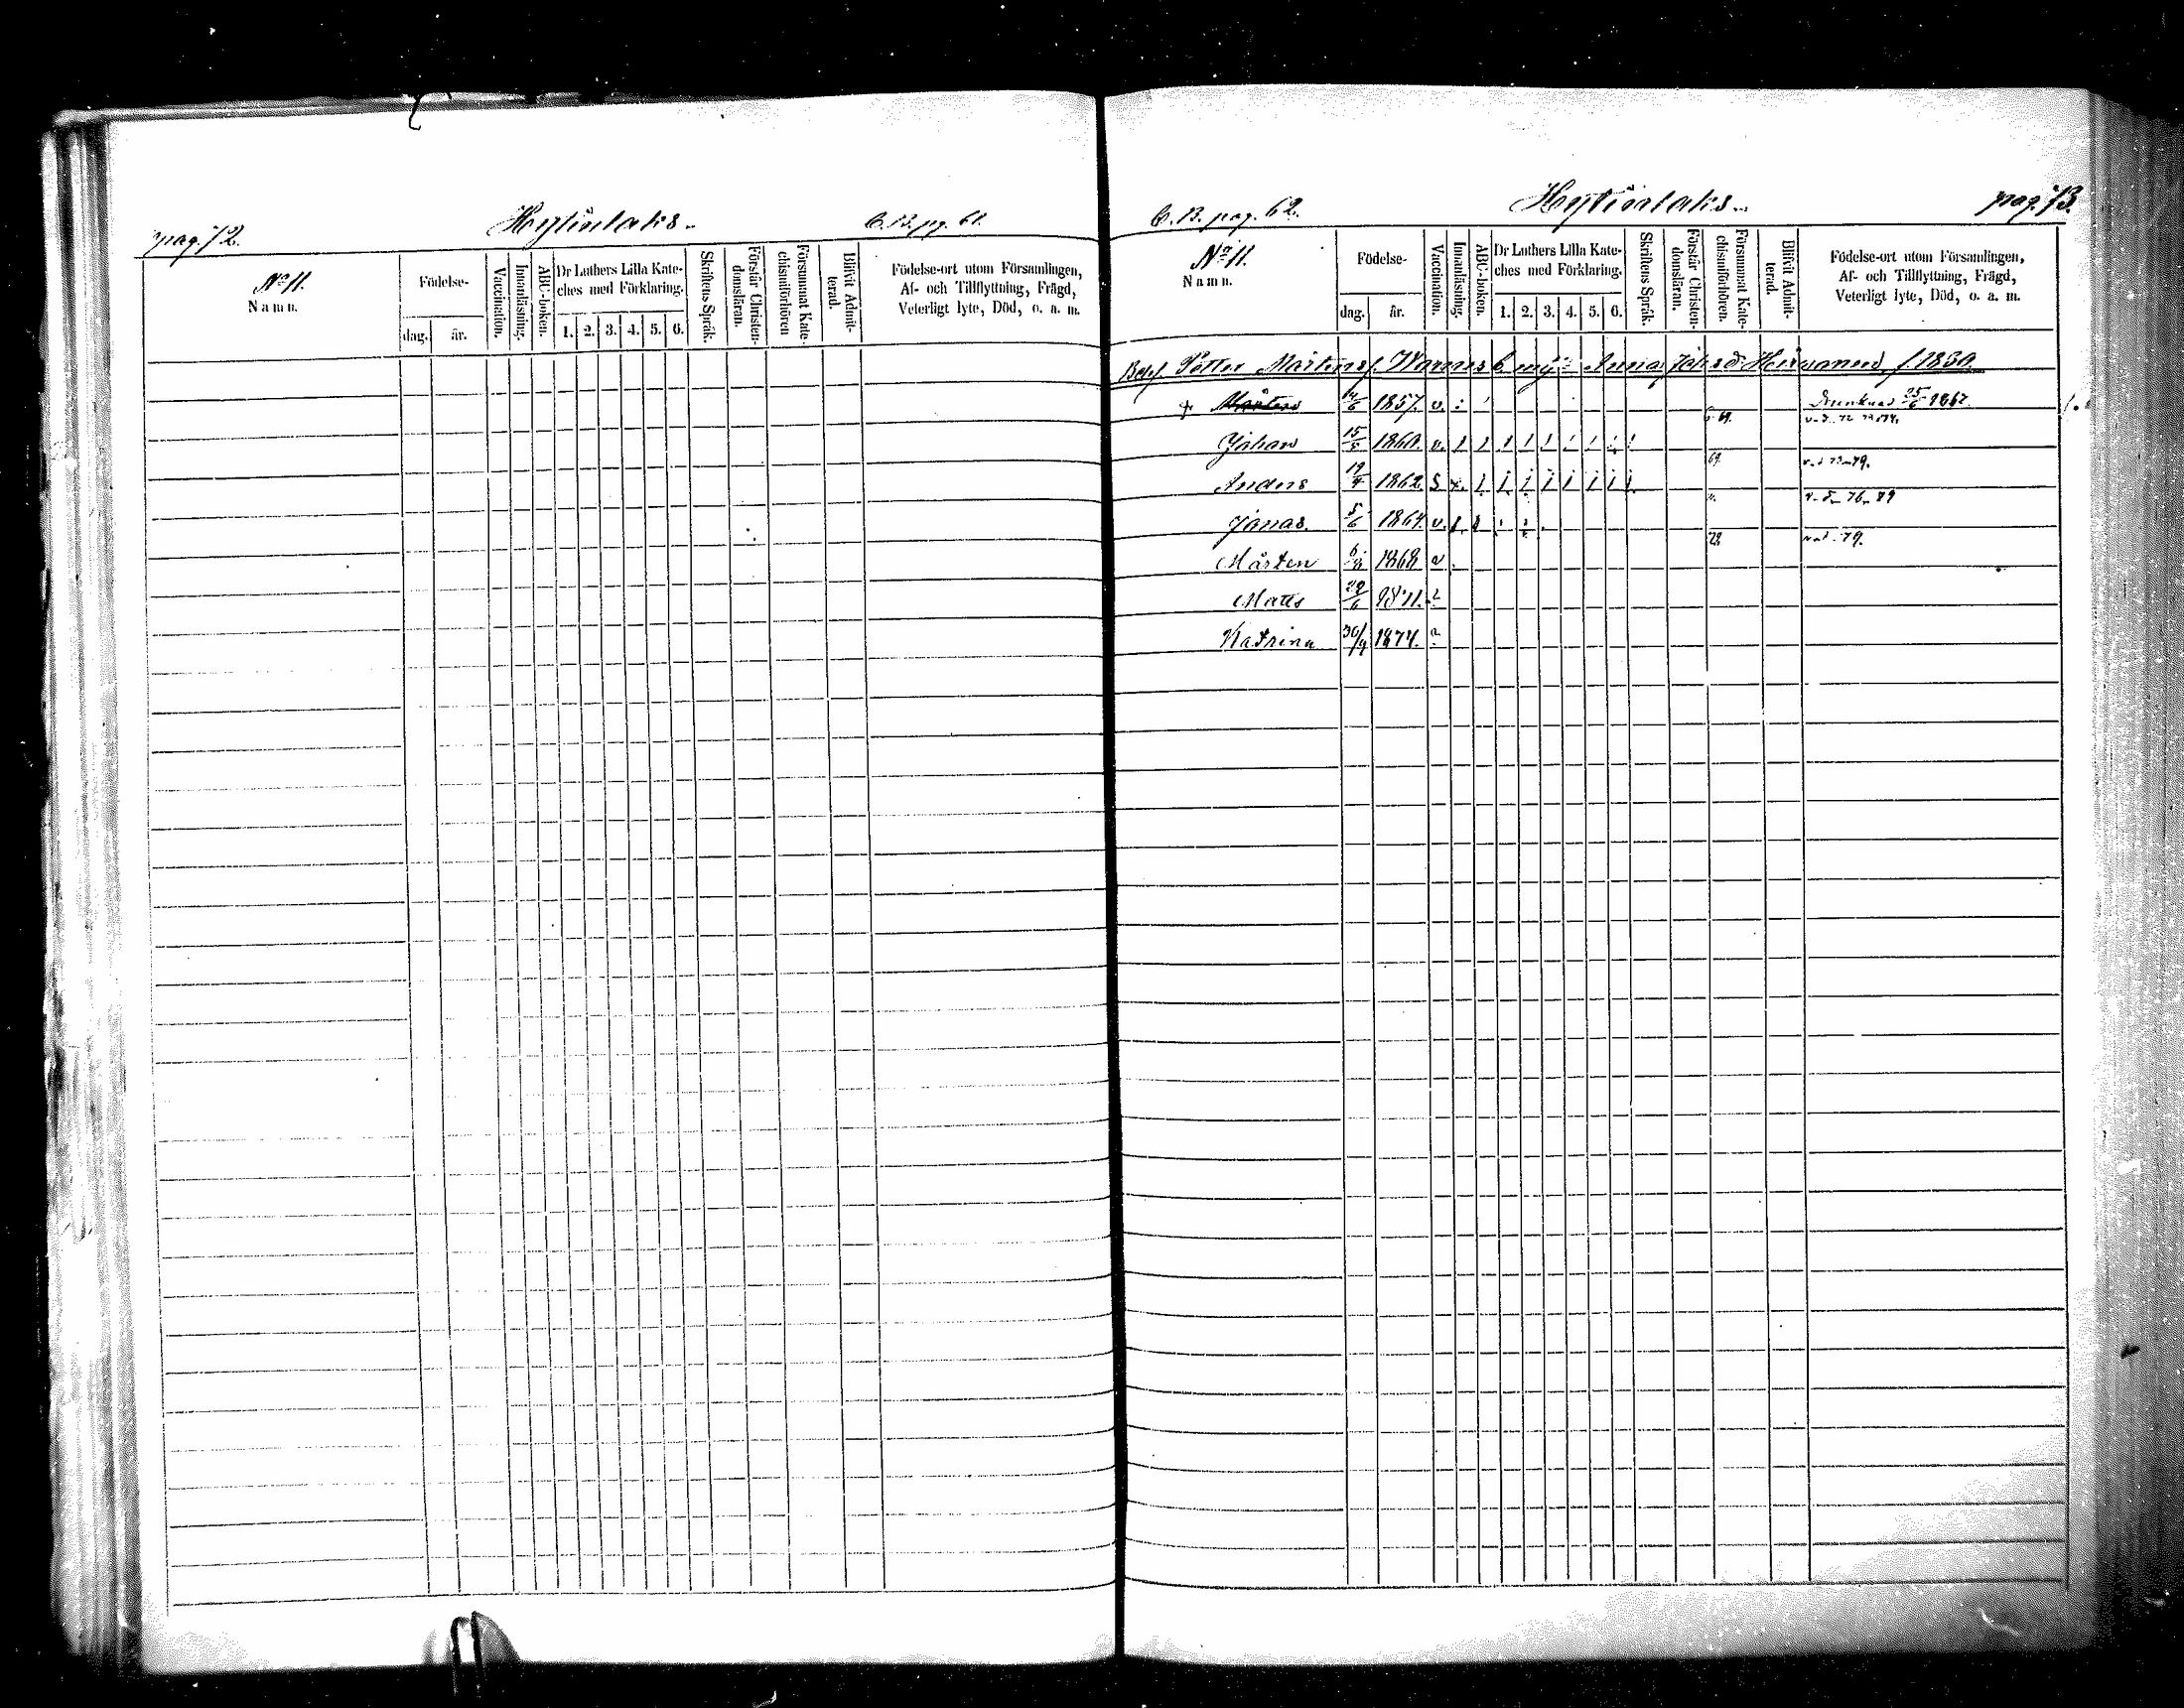 pag. 72.
Hytiälaks.
C. B. pg. 61.
No 11.
Namn.
Födelse-
dag. år.
Vaccination.
Innanläsning.
ABC-boken.
Dr Luthers Lilla Kate-
ches med Förklaring.
1. 2. 3. 4. 5. 6.
Skriftens Språk.
Förstår Christen-
domsläran.
Försummat Kate-
chismiförhören
Blifvit Admit-
terad.
Födelse-ort utom Församlingen,
Af- och Tillflyttning, Frägd,
Veterligt lyte, Död, o. a. m.
C. B. pag. 62.
Hytiälaks.
pag. 73.
No 11.
Namn.
Födelse-
dag. år.
Vaccination.
Innanläsning.
ABC-boken.
Dr Luthers Lilla Kate-
ches med Förklaring.
1. 2. 3. 4. 5. 6.
Skriftens Språk.
Förstår Christen-
domsläran.
Försummat Kate-
chismiförhören.
Blifvit Admit-
terad.
Födelse-ort utom Församlingen,
Af- och Tillflyttning, Frägd,
Veterligt lyte, Död, o. a. m.
Petter Mårtenss. Anna Johsdr f. 1830.
+ Mårten 14/6 1857. v. Drunknad 25/6 1867.
Johan 15/5 1860. v. 1 1 1 1 1 1 1 1 1
Anders 19/4 1862. 69.
Jonas 5/6 1864. v.
Mårten 1868 79.
Matts 28/6 1871.
Katrina 30/9 1874.